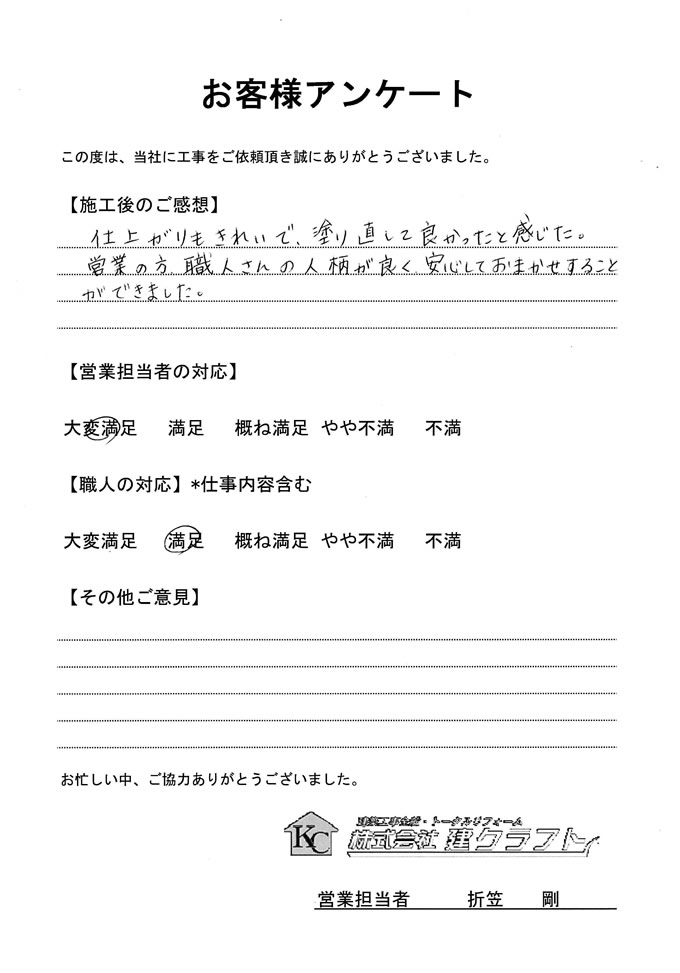 お客様アンケート
この度は、当社に工事をご依頼頂き誠にありがとうございました。
【施工後のご感想】
仕上がりもきれいで、塗り直して良かったと感じた。
営業の方、職人さんの人柄が良く、安心しておまかせすること
ができました。
【営業担当者の対応】
大変満足 満足 概ね満足 やや不満 不満
【職人の対応】*仕事内容含む
大変満足 満足 概ね満足 やや不満 不満
【その他ご意見】
お忙しい中、ご協力ありがとうございました。
KC
建築工事全般・トータルリフォーム
株式会社 建クラフト
営業担当者 折笠 剛